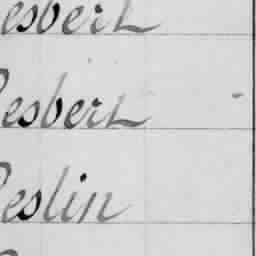 esbert
esbert
eslin